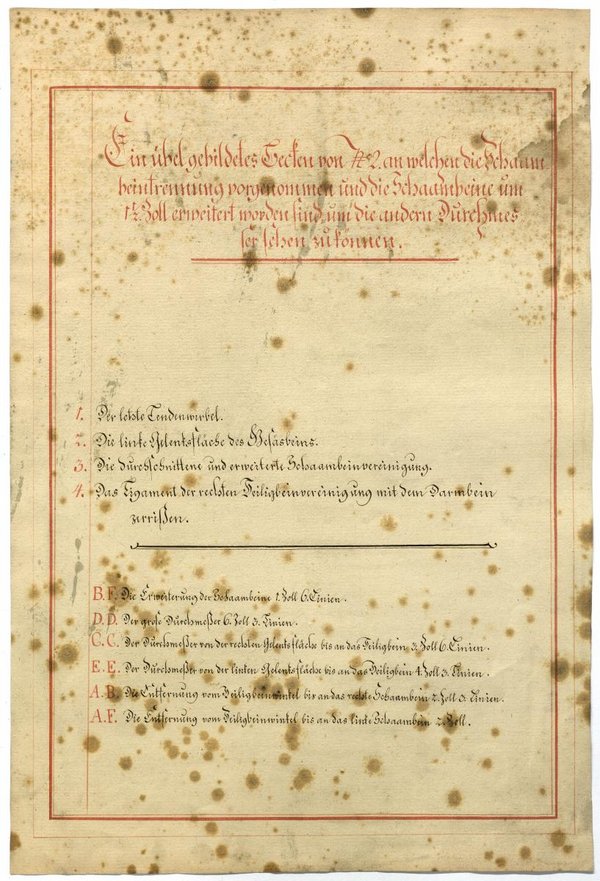 Ein übel gebildetes Becken von № 2. an welchen die Schaam
beintrennung vorgenommen und die Schaambeine um
1½ Zoll erweitert worden sind, um die andern Durchmes
ser sehen zu können.
1. Der letzte Lendenwirbel.
2. Die linke Gelenksfläche des Gesäsbeins.
3. Die durchschnittene und erweiterte Schaambeinvereinigung.
4. Das Ligament der rechten Heiligbeinvereinigung mit dem Darmbein
zerrißen.
B. F. Die Erweiterung der Schaambeine 1. Zoll 6. Linien.
D. D. Der große Durchmeßer 6. Zoll 3. Linien.
C. C. Der Durchmeßer von der rechten Gelenksfläche bis an das Heiligbein 3. Zoll 6. Linien.
E. E. Der Durchmeßer von der linken Gelenksfläche bis an das Heiligbein 4. Zoll 3. Linien.
A. B. Die Entfernung vom Heiligbeinwinkel bis an das rechte Schaambein 2. Zoll 3. Linien.
A. F. Die Entfernung vom Heiligbeinwinkel bis an das linke Schaambein 2. Zoll.